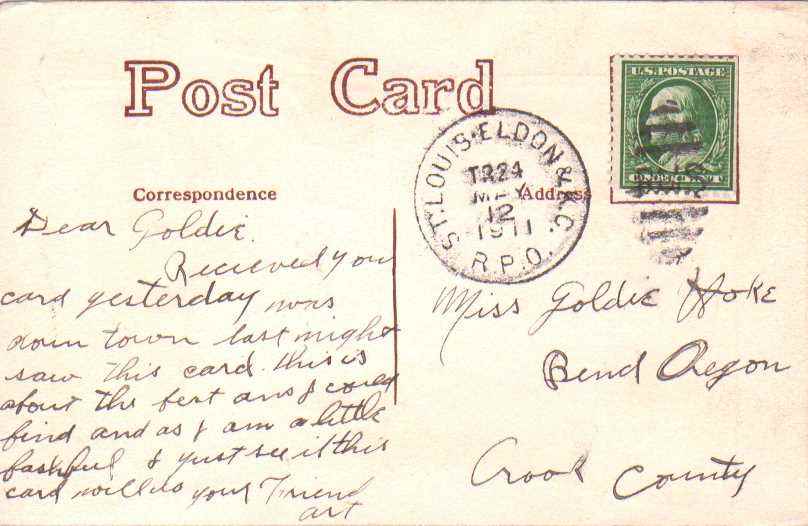 Post Card
U.S. POSTAGE
ST. LOUIS. ELDON & K.C.
TR24
MAY
12
1911
R.P.O.
Correspondence
Address
Dear Goldie.
Recieved you
card yesterday was
down town last night
saw this card. this is
about the best ans I could
find and as I am a little
bashful I just see if this
card will do your Friend
art
Miss Goldie Hoke
Bend Oregon
Crook County